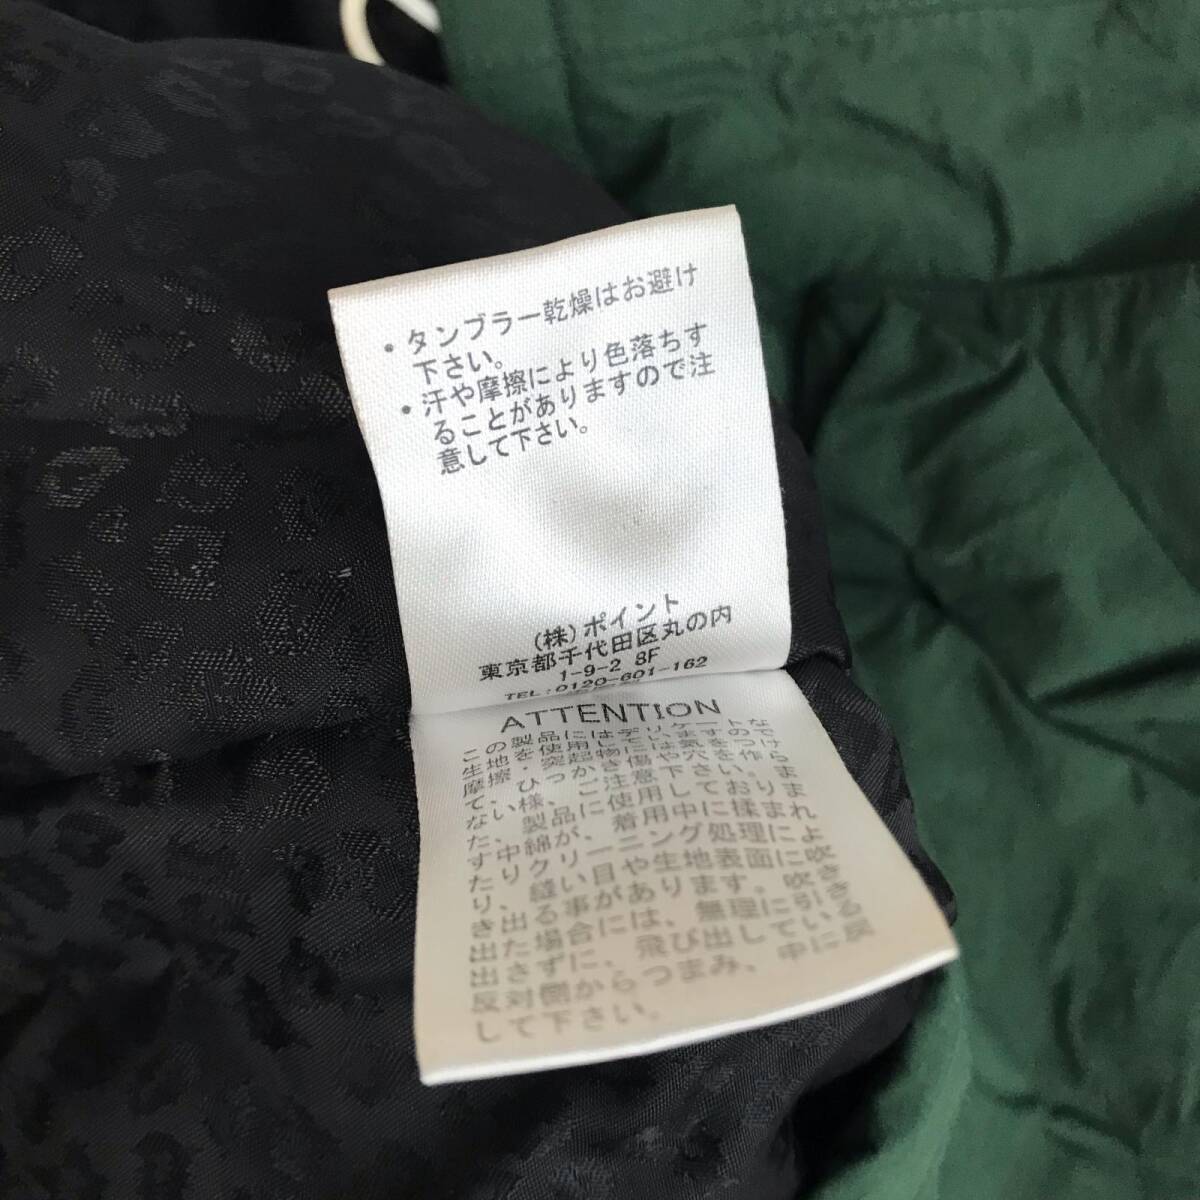 ・タンブラー乾燥はお避け
下さい。
・汗や摩擦により色落ちす
ることがありますので注
意して下さい。
(株)ポイント
東京都千代田区丸の内
1-9-2 8F
TEL:0120-601-162
ATTENTION
この製品にはデリケートな
生地を使用していますので
摩擦・突起物には気をつけ
て、ひっかき傷や穴を作ら
ない様、ご注意下さい。ま
た、製品に使用しておりま
す中綿が、着用中に揉まれ
たりクリーニング処理によ
り、縫い目や生地表面に吹
き出る事があります。吹き
出た場合には、無理に引き
出さずに、飛び出している
反対側からつまみ、中に戻
して下さい。